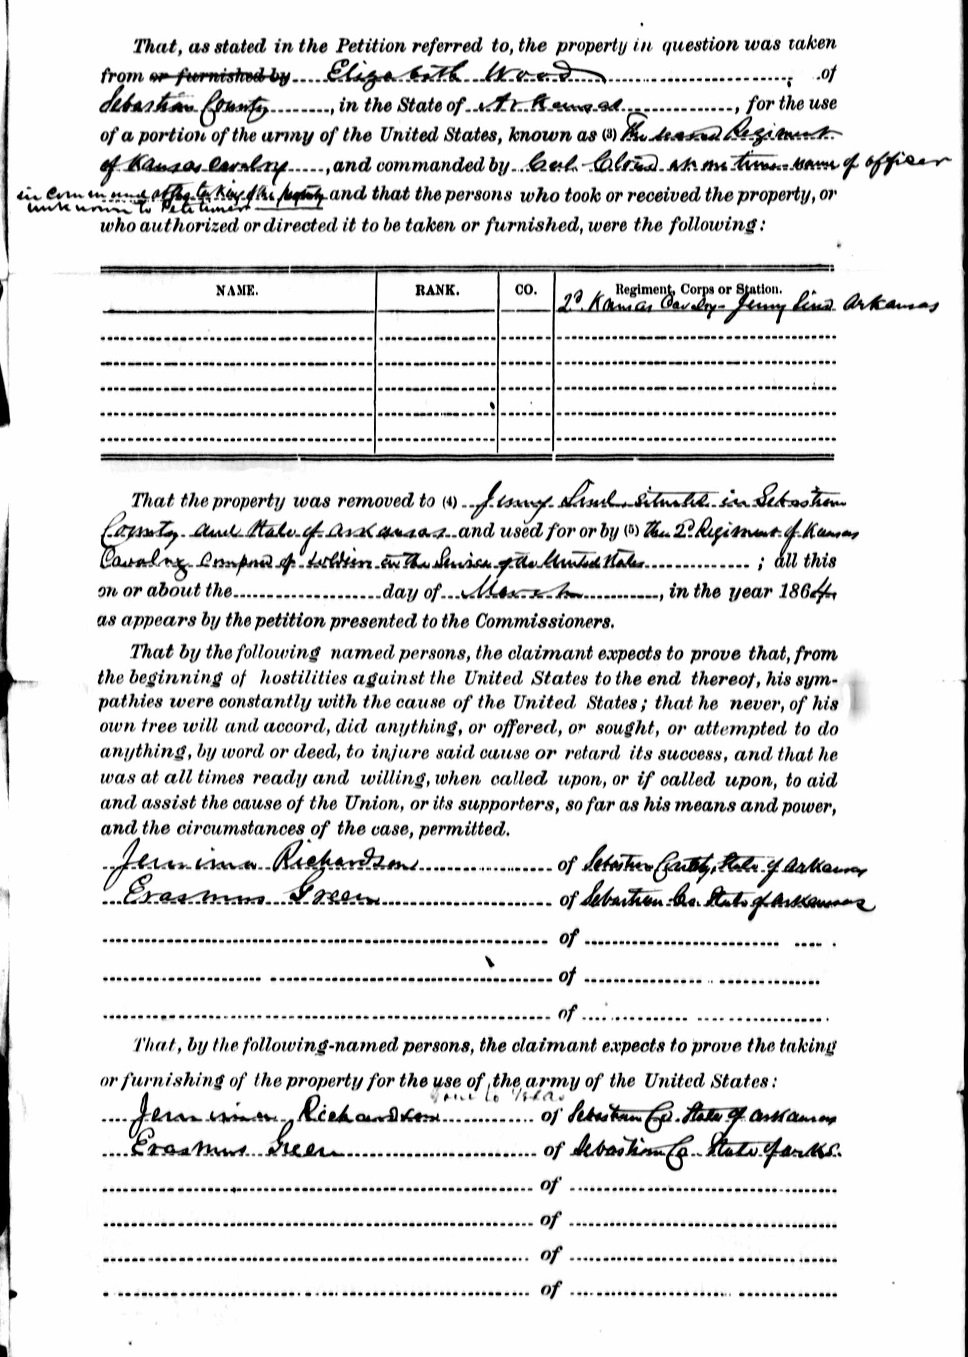 That, as stated in the Petition referred to, the property in question was taken
from or furnished by Elizabeth Wood, of
Sebastian County, in the State of Arkansas, for the use
of a portion of the army of the United States, known as (3) The second Regiment
of Kansas Cavalry, and commanded by Col. Cloud at one time name of officer
in command at the taking of the property and that the persons who took or received the property, or
unknown to Petitioner
who authorized or directed it to be taken or furnished, were the following:
NAME. RANK. CO. Regiment, Corps or Station.
2d Kansas Cavalry - Jenny Lind Arkansas
That the property was removed to (4) Jenny Lind situated in Sebastian
County and State of Arkansas and used for or by (5) the 2d Regiment of Kansas
Cavalry composed of soldiers in the Service of the United States; all this
on or about the day of March, in the year 1864,
as appears by the petition presented to the Commissioners.
That by the following named persons, the claimant expects to prove that, from
the beginning of hostilities against the United States to the end thereof, his sym-
pathies were constantly with the cause of the United States; that he never, of his
own free will and accord, did anything, or offered, or sought, or attempted to do
anything, by word or deed, to injure said cause or retard its success, and that he
was at all times ready and willing, when called upon, or if called upon, to aid
and assist the cause of the Union, or its supporters, so far as his means and power,
and the circumstances of the case, permitted.
Jemima Richardson of Sebastian County, State of Arkansas
Erasmus Green of Sebastian Co. State of Arkansas
of
of
of
That, by the following-named persons, the claimant expects to prove the taking
or furnishing of the property for the use of the army of the United States:
gone to Texas
Jemima Richardson of Sebastian Co. State of Arkansas
Erasmus Green of Sebastian Co State of Arks.
of
of
of
of